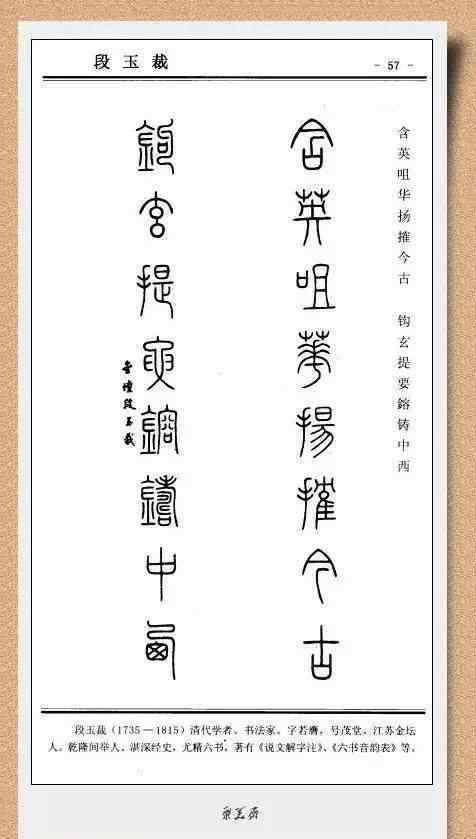 段玉裁
- 57 -
含英咀华扬摧今古 钩玄提要鎔铸中西
含英咀華揚摧今古
鉤玄提要鎔鑄中西
金壇段玉裁
段玉裁(1735—1815)清代学者、书法家。字若膺,号茂堂,江苏金坛
人。乾隆间举人。湛深经史,尤精六书,著有《说文解字注》、《六书音韵表》等。